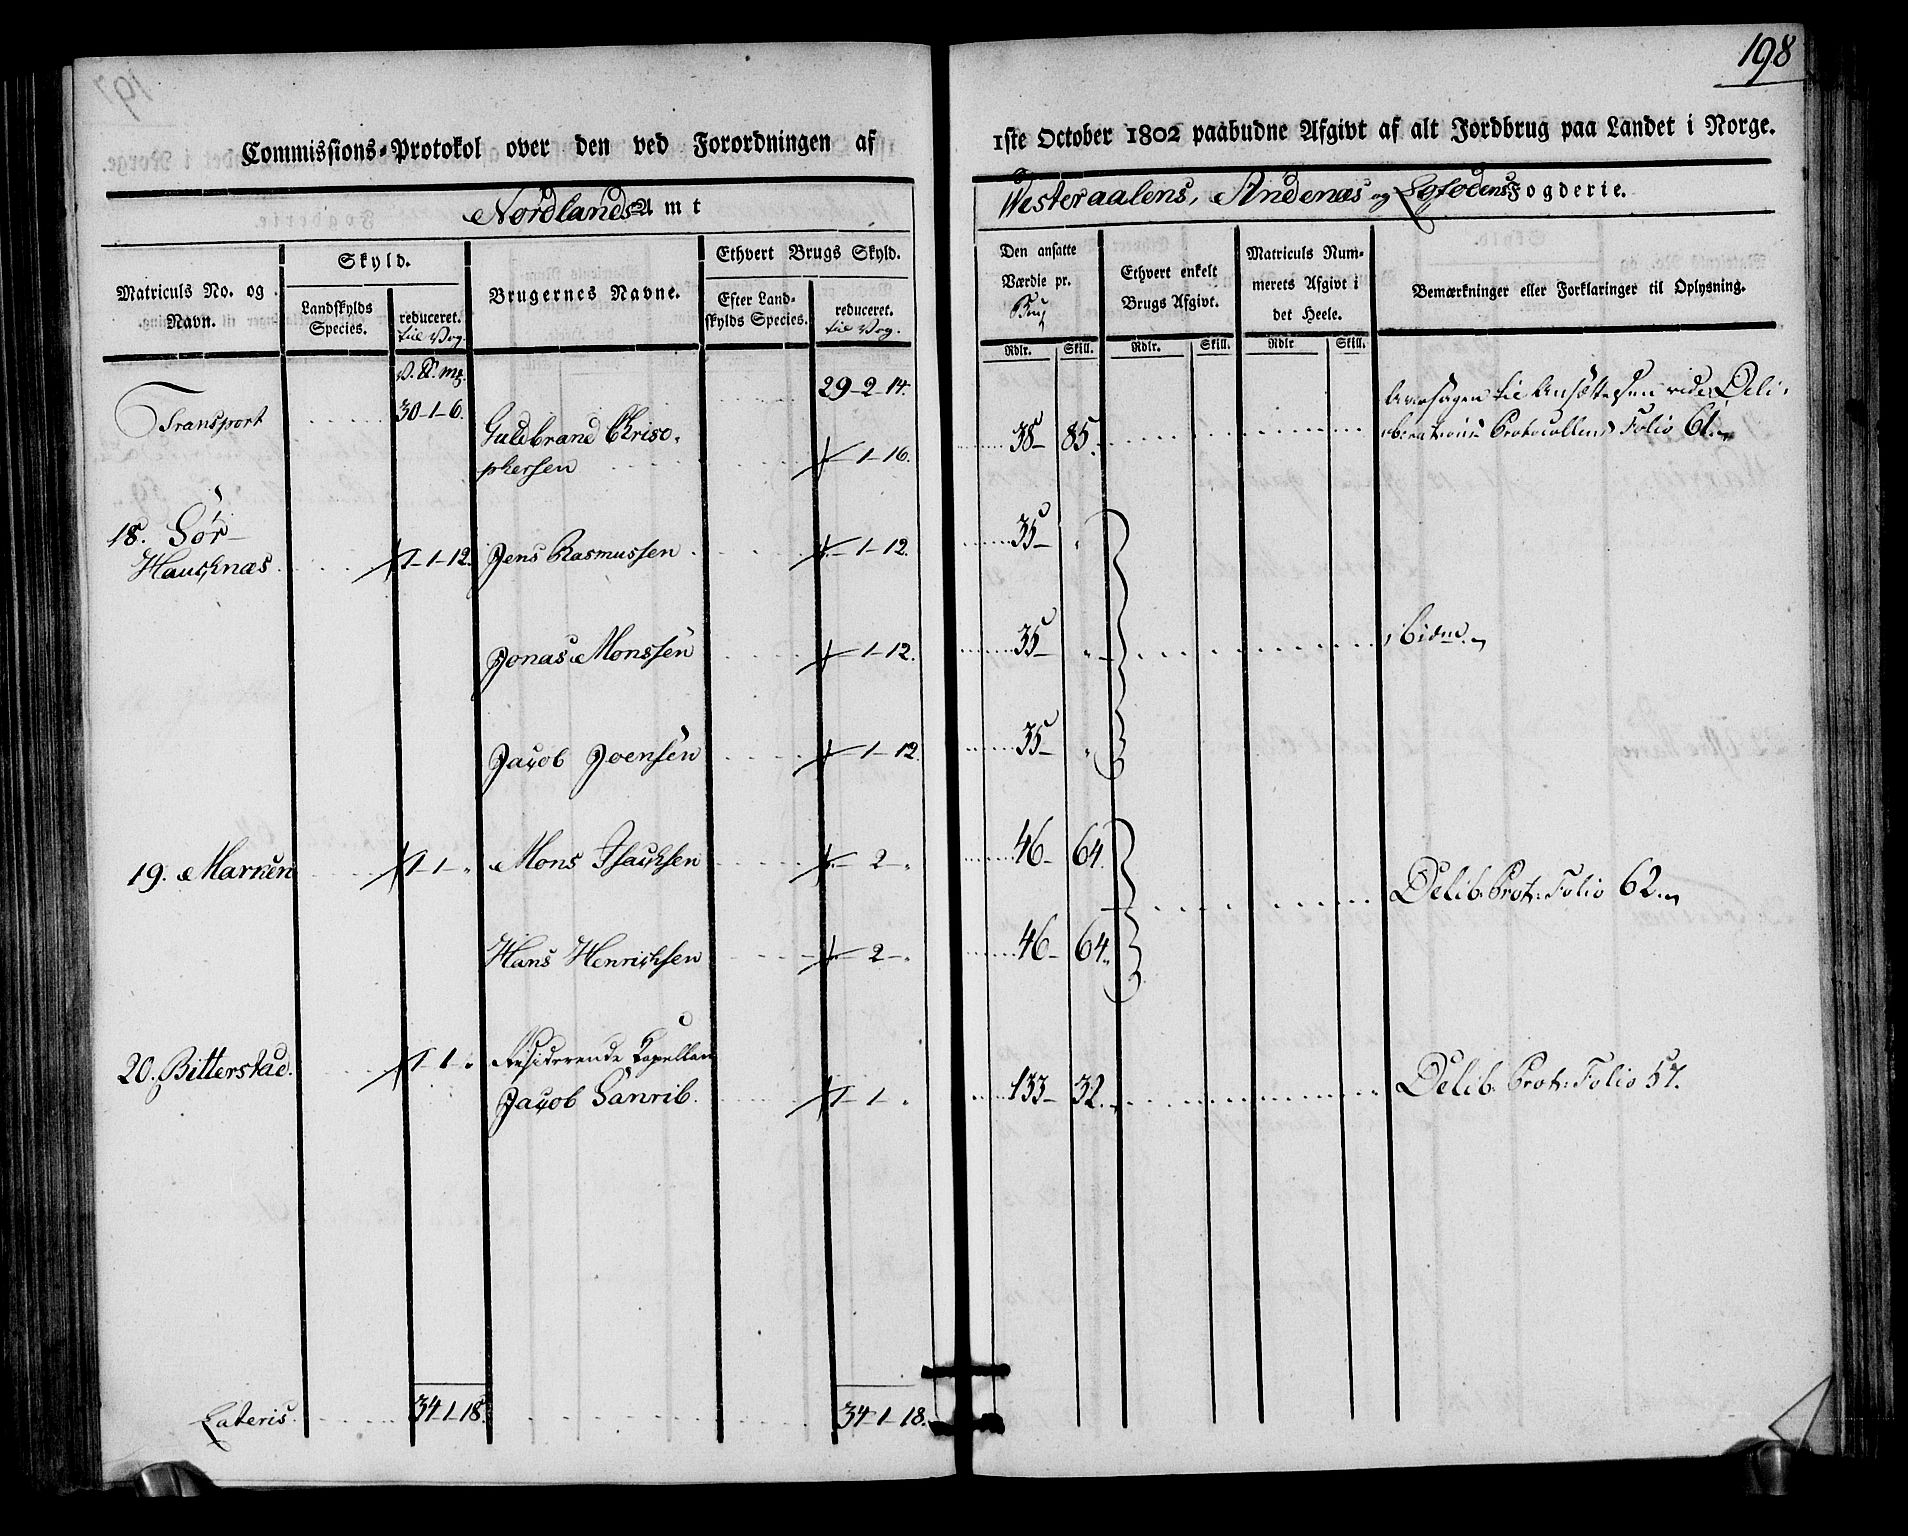 198
Commissions-Protokol over den ved Forordningen af
1ste October 1802 paabudne Afgivt af alt Jordbrug paa Landet i Norge.
Nordlands Amt
Westeraalens, Andenæs og Lofodens Fogderie.
Matriculs No. og Navn.
Skyld.
Landskylds Species.
reduceret. til Vog.
Brugernes Navne.
Ethvert Brugs Skyld.
Efter Landskylds Species.
reduceret. til Vog.
Den ansatte Værdie pr. Brug
Rdlr. Skill.
Ethvert enkelt Brugs Afgivt.
Rdlr. Skill.
Matriculs Nummerets Afgivt i det Heele.
Rdlr Skill.
Bemærkninger eller Forklaringer til Oplysning.
V. ℔. mk.
Transport 30-1-6. 29-2-14.
Guldbrand Chrisophersen 1-16. 38- 85. Aarsagen til Ansættelsen vide Deliberations Protocollens Folio 61.
18. Sør-Haucknæs 1-1-12. Jens Rasmussen 1-12. 35- „
Jonas Monssen 1-12. 35- „ ibidm.
Jacob Joensen 1-12. 35- „
19. Marken 1-1-„ Mons Isacksen 2-„ 46- 64. Delib. Prot: Folio 62.
Hans Henricksen 2-„ 46- 64.
20. Bitterstad. 1-1-„ Residerende Capellan
Jacob Sanrib. 1-1-„ 133- 32. Delib. Prot: Folio 57.
Lateris. 34-1-18. 34-1-18.